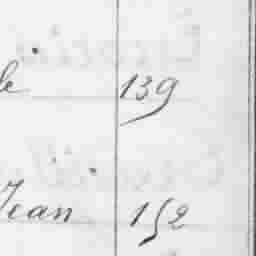 le 139
Jean 152